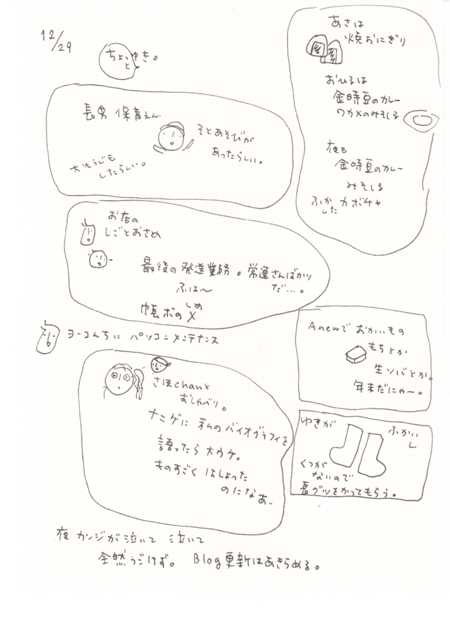 12/29
ちょっと ゆき。
長男 保育えん
そとあそびが
あったらしい。
大そうじも
したらしい。
お店の
しごとおさめ
最後の発送業務。常連さんばかり
だ…。
ふは〜
帳ボのしめ
ヨーコんちに パソコンメンテナンス
さほchanと
おしゃべり。
ナニゲに 私のバイオグラフィを
語ったら大ウケ。
ものすごく はしょった
のになあ。
夜 カンジが泣いて 泣いて
全然うごけず。 Blog更新はあきらめる。
あさは
焼おにぎり
おひるは
金時豆のカレー
ワカメのみそしる
夜も
金時豆のカレー
みそしる
ふかした カボチャ
Anewで おかいもの
もちとか
生ソバとか。
年末だにゃ〜。
ゆきが ふかいし
くつが
ないので
長グツをかってもらう。